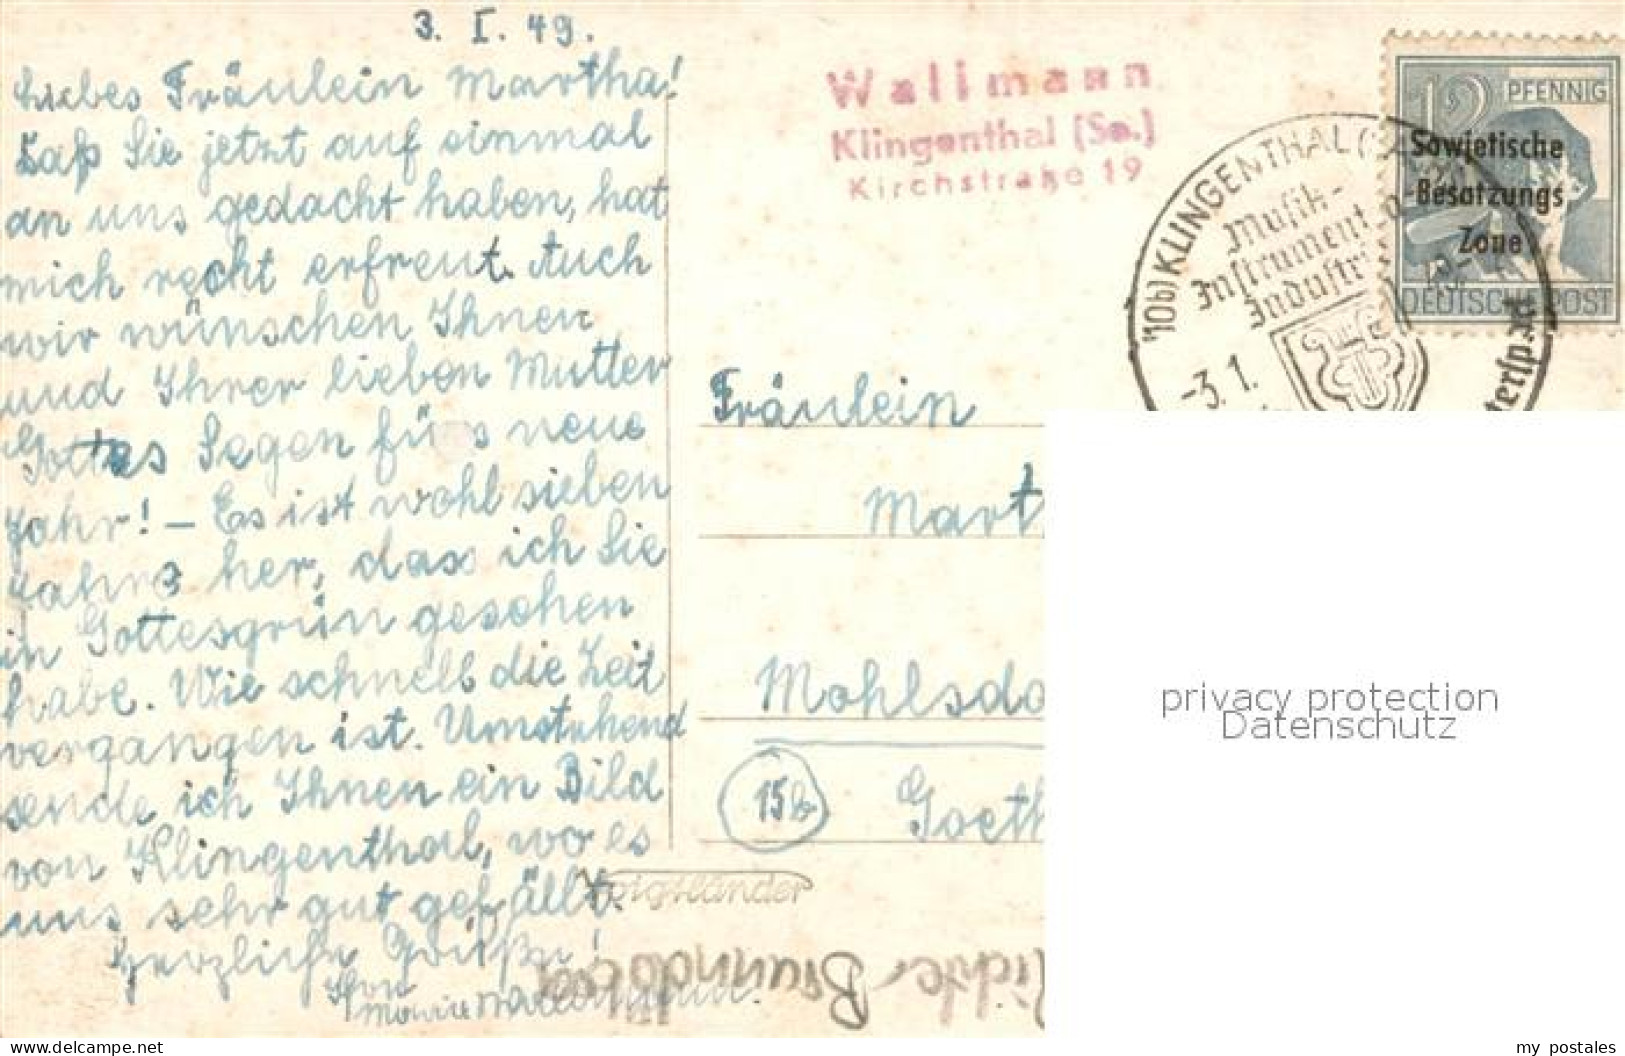 3. I. 49.
Liebes Fräulein Martha!
Daß Sie jetzt auf einmal
an uns gedacht haben, hat
mich recht erfreut. Auch
wir wünschen Ihnen
und Ihrer lieben Mutter
Gottes Segen fürs neue
Jahr! – Es ist wohl sieben
Jahre her, dass ich Sie
in Gottesgrün gesehen
habe. Wie schnell die Zeit
vergangen ist. Umstehend
sende ich Ihnen ein Bild
von Klingenthal, wo es
uns sehr gut gefällt.
Herzliche Grüße!
Von
Wallmann
Klingenthal (Sa.)
Kirchstraße 19
"10b) KLINGENTHAL (
Musik-
Instrumenten-
Industrie
-3. 1.
12 PFENNIG
Sowjetische
Besatzungs
Zone
DEUTSCHE POST
Fräulein
Mart
Mohlsdo
15b
Goeth
Voigtländer
privacy protection
Datenschutz
THE WORLDWIDE MARKETPLACE FOR COLLECTORS
my postales